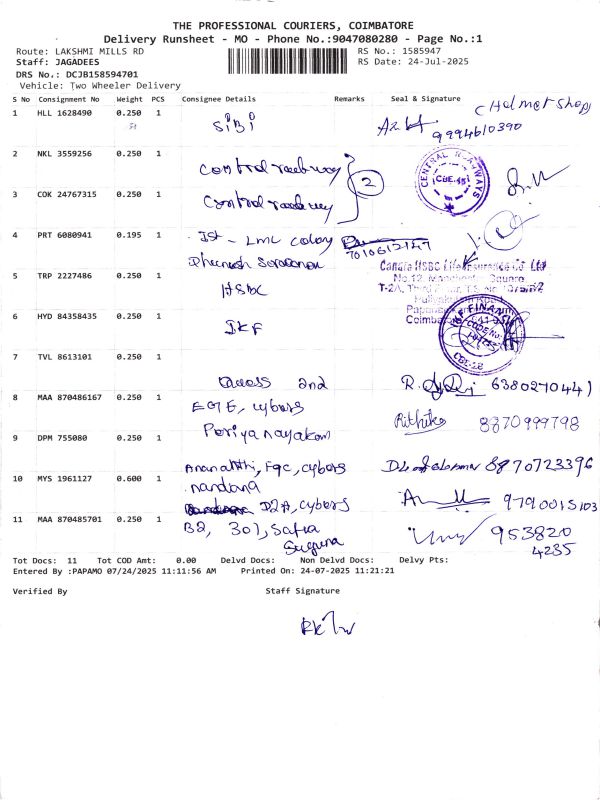 THE PROFESSIONAL COURIERS, COIMBATORE
Delivery Runsheet - MO - Phone No.:9047080280 - Page No.:1
Route: LAKSHMI MILLS RD
RS No.: 1585947
Staff: JAGADEES
RS Date: 24-Jul-2025
DRS No.: DCJB158594701
Vehicle: Two Wheeler Delivery
S No Consignment No Weight PCS Consignee Details Remarks Seal & Signature
1 HLL 1628490 0.250 1 SiBi 9994610390
2 NKL 3559256 0.250 1 Central
2
CENTRAL RAILWAYS
CBE.45
3 COK 24767315 0.250 1 Central
4 PRT 6080941 0.195 1 Ist - LML colony
7010612147
5 TRP 2227486 0.250 1 HSBC
Canara HSBC Life Insurance Co. Ltd
No.12, Manchester Square
6 HYD 84358435 0.250 1 IKF
IKF FINANCE
CODE No:
7 TVL 8613101 0.250 1
Access 2nd 6380270441
8 MAA 870486167 0.250 1 EGF, cybers
Periyanayakam 8870999798
9 DPM 755080 0.250 1
FGC, cybers 8870723396
10 MYS 1961127 0.600 1 nandana
D2A, cybers 9790015103
11 MAA 870485701 0.250 1 B2, 301, Safia
Suguna
953820
4235
Tot Docs: 11 Tot COD Amt: 0.00 Delvd Docs: Non Delvd Docs: Delvy Pts:
Entered By :PAPAMO 07/24/2025 11:11:56 AM Printed On: 24-07-2025 11:21:21
Verified By Staff Signature